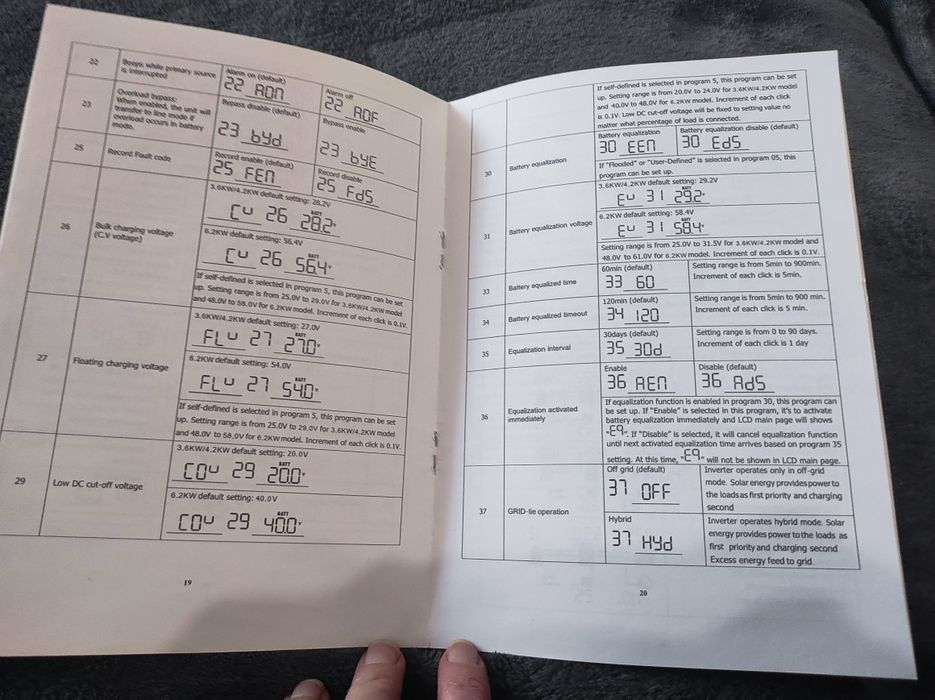 22
Beeps while primary source
is interrupted
Alarm on (default)
22 AON
Alarm off
22 AOF
23
Overload bypass:
When enabled, the unit will
transfer to line mode if
overload occurs in battery
mode.
Bypass disable (default)
23 byd
Bypass enable
23 byE
25
Record Fault code
Record enable (default)
25 FEN
Record disable
25 FdS
26
Bulk charging voltage
(C.V voltage)
3.6KW/4.2KW default setting: 28.2V
CU 26 BATT 28.2v
6.2KW default setting: 56.4V
CU 26 BATT 56.4v
If self-defined is selected in program 5, this program can be set
up. Setting range is from 25.0V to 29.0V for 3.6KW/4.2KW model
and 48.0V to 58.0V for 6.2KW model. Increment of each click is 0.1V.
27
Floating charging voltage
3.6KW/4.2KW default setting: 27.0V
FLU 27 BATT 27.0v
6.2KW default setting: 54.0V
FLU 27 BATT 54.0v
If self-defined is selected in program 5, this program can be set
up. Setting range is from 25.0V to 29.0V for 3.6KW/4.2KW model
and 48.0V to 58.0V for 6.2KW model. Increment of each click is 0.1V.
29
Low DC cut-off voltage
3.6KW/4.2KW default setting: 20.0V
COU 29 BATT 20.0v
6.2KW default setting: 40.0V
COU 29 BATT 40.0v
19
If self-defined is selected in program 5, this program can be set
up. Setting range is from 20.0V to 24.0V for 3.6KW/4.2KW model
and 40.0V to 48.0V for 6.2KW model. Increment of each click
is 0.1V. Low DC cut-off voltage will be fixed to setting value no
matter what percentage of load is connected.
30
Battery equalization
Battery equalization
30 EEN
Battery equalization disable (default)
30 EdS
If "Flooded" or "User-Defined" is selected in program 05, this
program can be set up.
31
Battery equalization voltage
3.6KW/4.2KW default setting: 29.2V
EU 31 BATT 29.2v
6.2KW default setting: 58.4V
EU 31 BATT 58.4v
Setting range is from 25.0V to 31.5V for 3.6KW/4.2KW model and
48.0V to 61.0V for 6.2KW model. Increment of each click is 0.1V.
33
Battery equalized time
60min (default)
33 60
Setting range is from 5min to 900min.
Increment of each click is 5min.
34
Battery equalized timeout
120min (default)
34 120
Setting range is from 5min to 900 min.
Increment of each click is 5 min.
35
Equalization interval
30days (default)
35 30d
Setting range is from 0 to 90 days.
Increment of each click is 1 day
36
Equalization activated
immediately
Enable
36 AEN
Disable (default)
36 AdS
If equalization function is enabled in program 30, this program can
be set up. If "Enable" is selected in this program, it's to activate
battery equalization immediately and LCD main page will shows
"E9". If "Disable" is selected, it will cancel equalization function
until next activated equalization time arrives based on program 35
setting. At this time, "E9" will not be shown in LCD main page.
37
GRID-tie operation
Off grid (default)
37 OFF
Inverter operates only in off-grid
mode. Solar energy provides power to
the loads as first priority and charging
second
Hybrid
37 HYd
Inverter operates hybrid mode. Solar
energy provides power to the loads as
first priority and charging second
Excess energy feed to grid
20